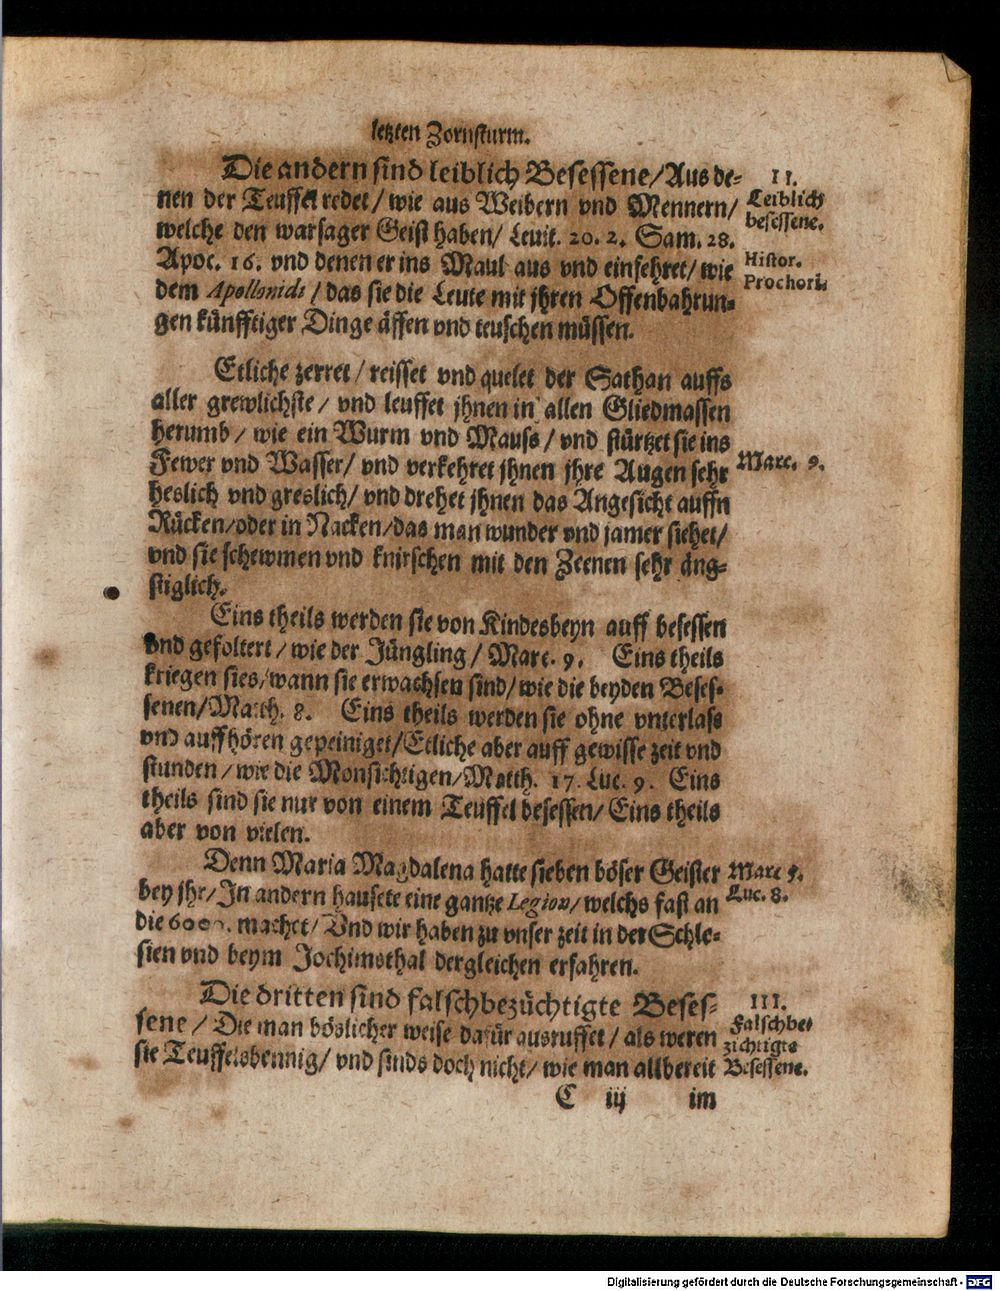 letzten Zornsturm.
Die andern sind leiblich Besessene/Aus de-
nen der Teuffel redet/ wie aus Weibern vnd Mennern/
welche den warsager Geist haben/ Levit. 20. 2. Sam. 28.
Apoc. 16. vnd denen er ins Maul aus vnd einfehret/ wie
dem Apollonidi/ das sie die Leute mit jhren Offenbahrun-
gen künfftiger Dinge äffen vnd teuschen müssen.
11.
Leiblich
besessene.
Histor.
Prochori.
Etliche zerret/ reisset vnd quelet der Sathan auffs
aller grewlichste/ vnd leuffet jhnen in allen Gliedmassen
herumb/ wie ein Wurm vnd Mauss/ vnd stürtzet sie ins
Fewer vnd Wasser/ vnd verkehret jhnen jhre Augen sehr
heslich vnd greslich/ vnd drehet jhnen das Angesicht auffn
Rücken/oder in Nacken/das man wunder vnd jamer siehet/
vnd sie schewmen vnd knirschen mit den Zeenen sehr äng-
stiglich.
Marc. 9.
Eins theils werden sie von Kindesbeyn auff besessen
vnd gefoltert/ wie der Jüngling/ Marc. 9. Eins theils
kriegen sies/wann sie erwachsen sind/ wie die beyden Beses-
senen/Matth. 8. Eins theils werden sie ohne vnterlass
vnd auffhören gepeiniget/Etliche aber auff gewisse zeit vnd
stunden/ wie die Monsichtigen/Matth. 17. Luc. 9. Eins
theils sind sie nur von einem Teuffel besessen/ Eins theils
aber von vielen.
Denn Maria Magdalena hatte sieben böser Geister
bey jhr/In andern hausete eine gantze Legion/ welchs fast an
die 6000. machet/ Vnd wir haben zu vnser zeit in der Schle-
sien vnd beym Jochimsthal dergleichen erfahren.
Marc 5.
Luc. 8.
Die dritten sind falschbezüchtigte Beses-
sene/ Die man böslicher weise dafür ausruffet/ als weren
sie Teuffelshennig/ vnd sinds doch nicht/ wie man allbereit
III.
Falschbe-
zichtigte
Besessene.
C iij im
Digitalisierung gefördert durch die Deutsche Forschungsgemeinschaft - DFG